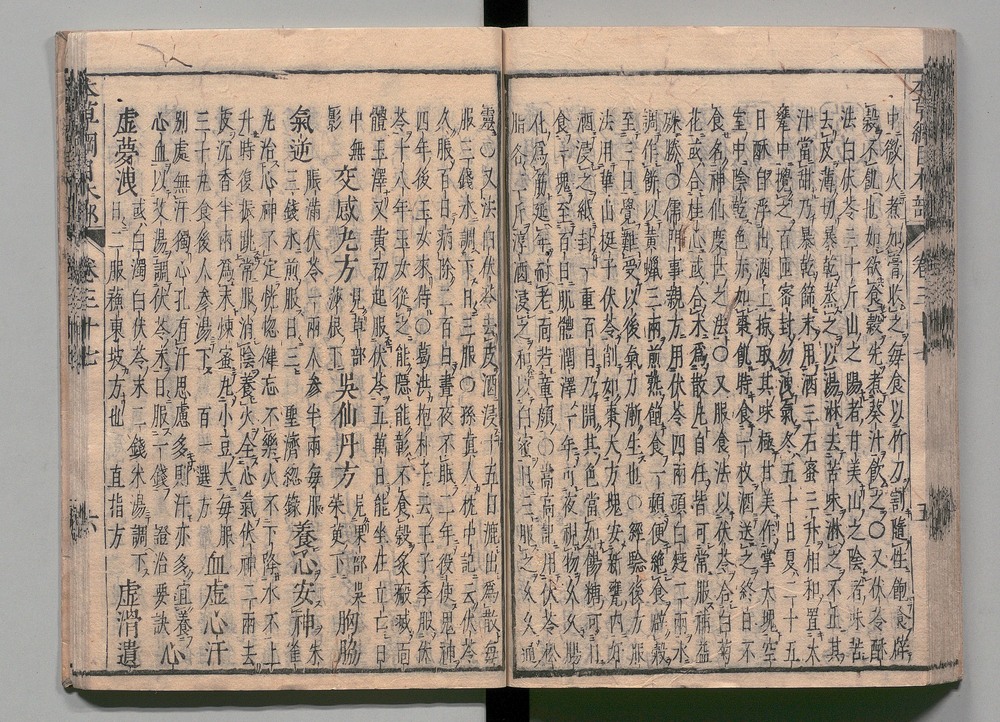 本草綱目木部 卷三十七 五
中微火煮如膏收之每食以竹刀割隨性飽食辟
穀不飢也如欲食穀先煮葵汁飲之〇又茯苓酥
法白茯苓三十斤山之陽者甘美山之陰者味苦
去皮薄切暴乾蒸之以湯淋去苦味淋之不止其
汁當甜乃暴乾篩末用酒三石蜜三升相和置大
甕中攪之百匝密封勿洩氣冬五十日夏二十五
日酥自浮出酒上掠取其味極甘美作掌大塊空
室中陰乾色赤如棗飢時食一枚酒送之終日不
食名神仙度世之法〇又服食法以茯苓合白菊
花或合桂心或合朮爲散丸自任皆可常服補益
殊勝〇儒門事親方用茯苓四兩頭白麪二兩水
調作餅以黃蠟三兩煎熟飽食一頓便絕食辟穀
至三日覺難受以後氣力漸生也〇經驗後方服
法用華山挺子茯苓削如棗大方塊安新甕內好
酒浸之紙封一重百日乃開其色當如餳糖可日
食一塊至百日肌體潤澤一年可夜視物久久腸
化爲筋延年耐老面若童顏〇嵩高記用茯苓松
脂各二斤淳酒浸之和以白蜜日三服之久久通
靈〇又法白茯苓去皮酒浸十五日漉出爲散每
服三錢水調下日三服〇孫真人枕中記云茯苓
久服百日病除二百日晝夜不眠二年役使鬼神
四年後玉女來侍〇葛洪抱朴子云壬子季服茯
苓十八年玉女從之能隱能彰不食穀灸瘢滅面
體玉澤又黃初起服茯苓五萬日能坐在立亡日
中無影 交感丸方 見草部莎根下 吳仙丹方 見果部吳茱萸下 胸脇
氣逆 脹滿茯苓一兩人參半兩每服三錢水煎服日三 聖濟總錄 養心安神 朱雀
丸治心神不定恍惚健忘不樂火不下降水不上
升時復振跳常服消陰養火全心氣茯神二兩去
皮沉香半兩爲末煉蜜丸小豆大每服
三十丸食後人參湯下 百一選方 血虛心汗
別處無汗獨心孔有汗思慮多則汗亦多宜養
心血以艾湯調茯苓末日服一錢 證治要訣 心
虛夢洩 或白濁白茯苓末二錢米湯調下日二服蘇東坡方也 直指方 虛滑遺
本草綱目木部 卷三十七 六